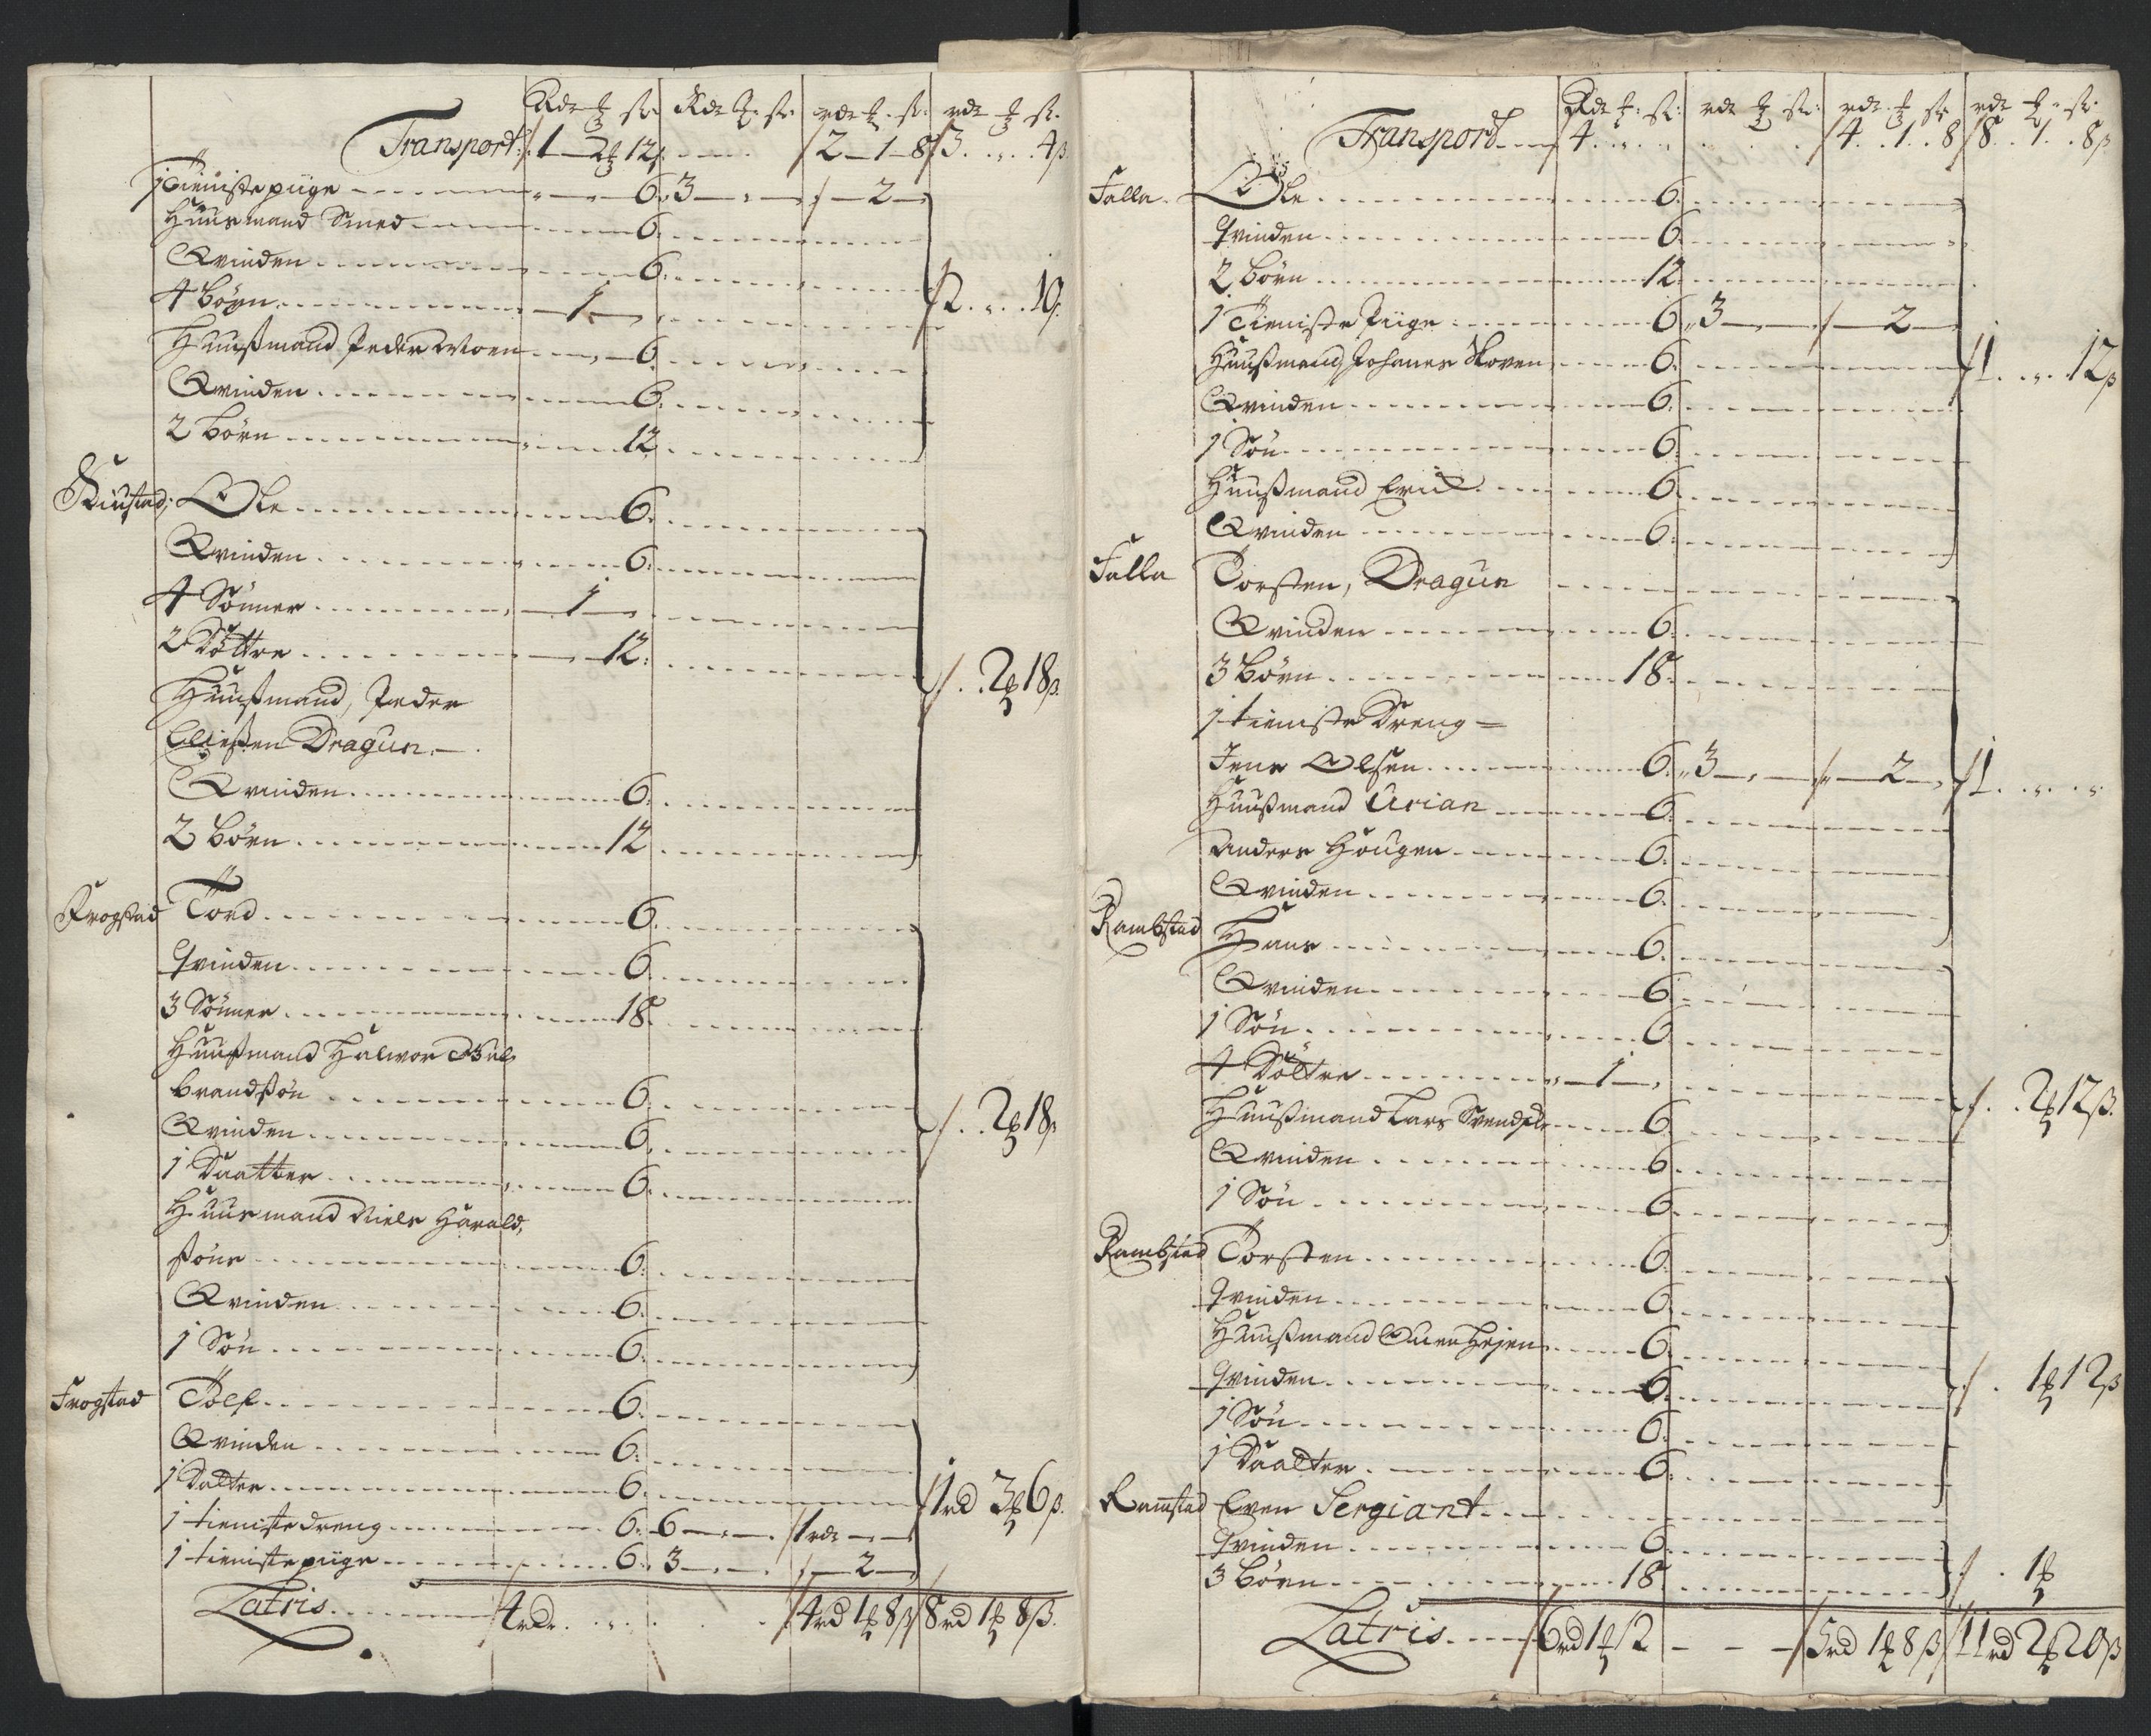 Rdr ꝑ sk: Rdr ꝑ: sk: rdr ꝑ. sk: rdr ꝑ sk.
Transport: 1 2ꝑ 12 2 1 8 3 . . 4ß
1 Tieniste piige 6 3 2
Huusmand Smed 6
Qvinden 6
4 Børn 1 2 . . 10
Huusmand Peder Moen 6
Qvinden 6
2 Børn 12
Kiustad, Ole 6
Qvinden 6
4 Sønner 1
2 Døttre 12 2ꝑ 18ß
Huusmand, Peder
Dragun
Qvinden 6
2 Børn 12
Frogstad Tord 6
Qvinden 6
3 Sønner 18
Huusmand Halvor Gul
brandsøn 6 2ꝑ 18ß
Qvinden 6
1 Daatter 6
Huusmand Niels Harald,
søns 6
Qvinden 6
1 Søn 6
Frogstad Toll 6
Qvinden 6
1 Datter 6 1rd 3ꝑ 6ß
1 tieniste dreng 6 6 1rdr
1 tieniste piige 6 3 2
Latris 4rdr 4rd 1ꝑ 8ß 8rd 1ꝑ 8ß

Rdr ꝑ: sk: rdr ꝑ sk: rdr ꝑ sk rdr ꝑ sk
Transport 4 4 . 1 . 8 8 . 1 . 8ß
Falla Ole 6
Qvinden 6
2 Børn 12
1 Tieniste Piige 6 3 2
Huusmand Johanes Skoven 6 1 . . 12ß
Qvinden 6
1 Søn 6
Huusmand Erich 6
Qvinden 6
Falla Torsten, Dragun
Qvinden 6
3 Børn 18
1 tieniste Dreng =
Jens Olsen 6 3 2 1
Huusmand Urian 6
Anders Hougen 6
Qvinden 6
Rambstad Hans 6
Qvinden 6
1 Søn 6
4 Døttre 1
Huusmand Lars Svends: 6 2ꝑ 12ß
Qvinden 6
1 Søn 6
Rambstad Torsten 6
Qvinden 6
Huusmand 6
Qvinden 6 1ꝑ 12ß
1 Søn 6
1 Daatter 6
Ramstad Even Sergiant
Qvinden 6
3 Børn 18 1ꝑ
Latris 6rd 1ꝑ 12 5rd 1ꝑ 8ß 11rd 2ꝑ 20ß